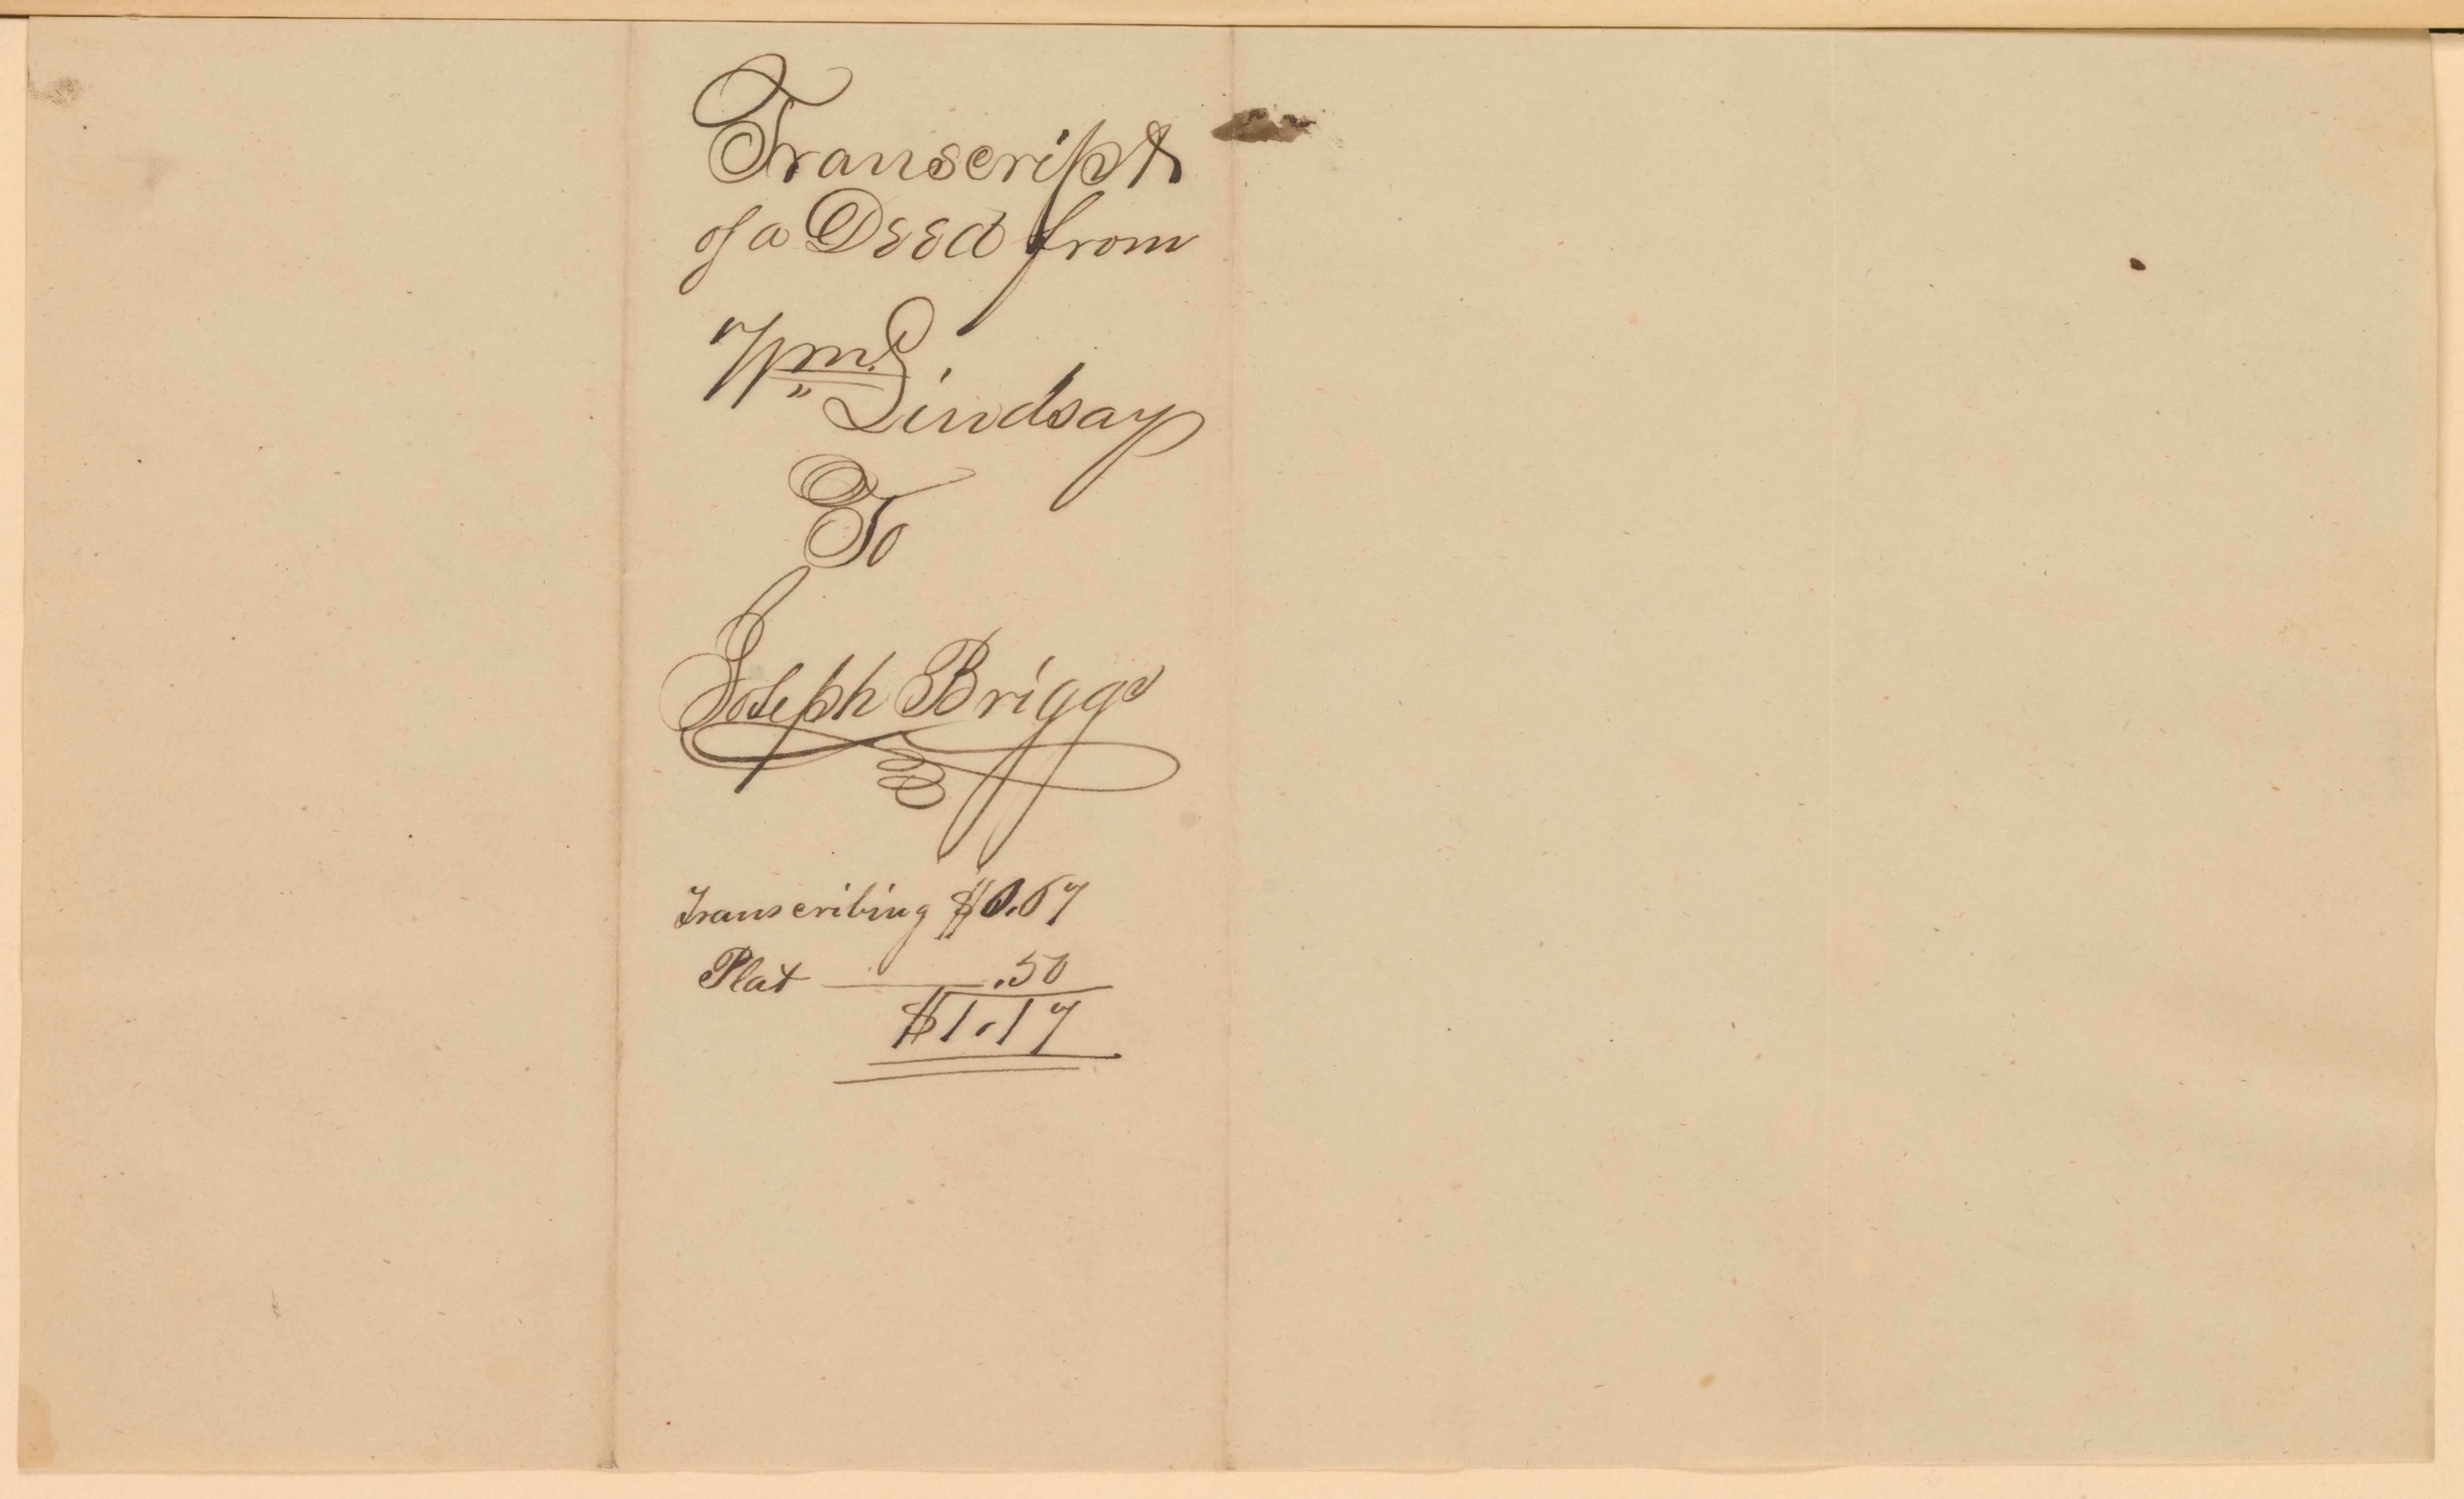 Transcript
of a Deed from
Wm. Lindsay
To
Joseph Briggs
Transcribing $0.67
Plat .50
$1.17